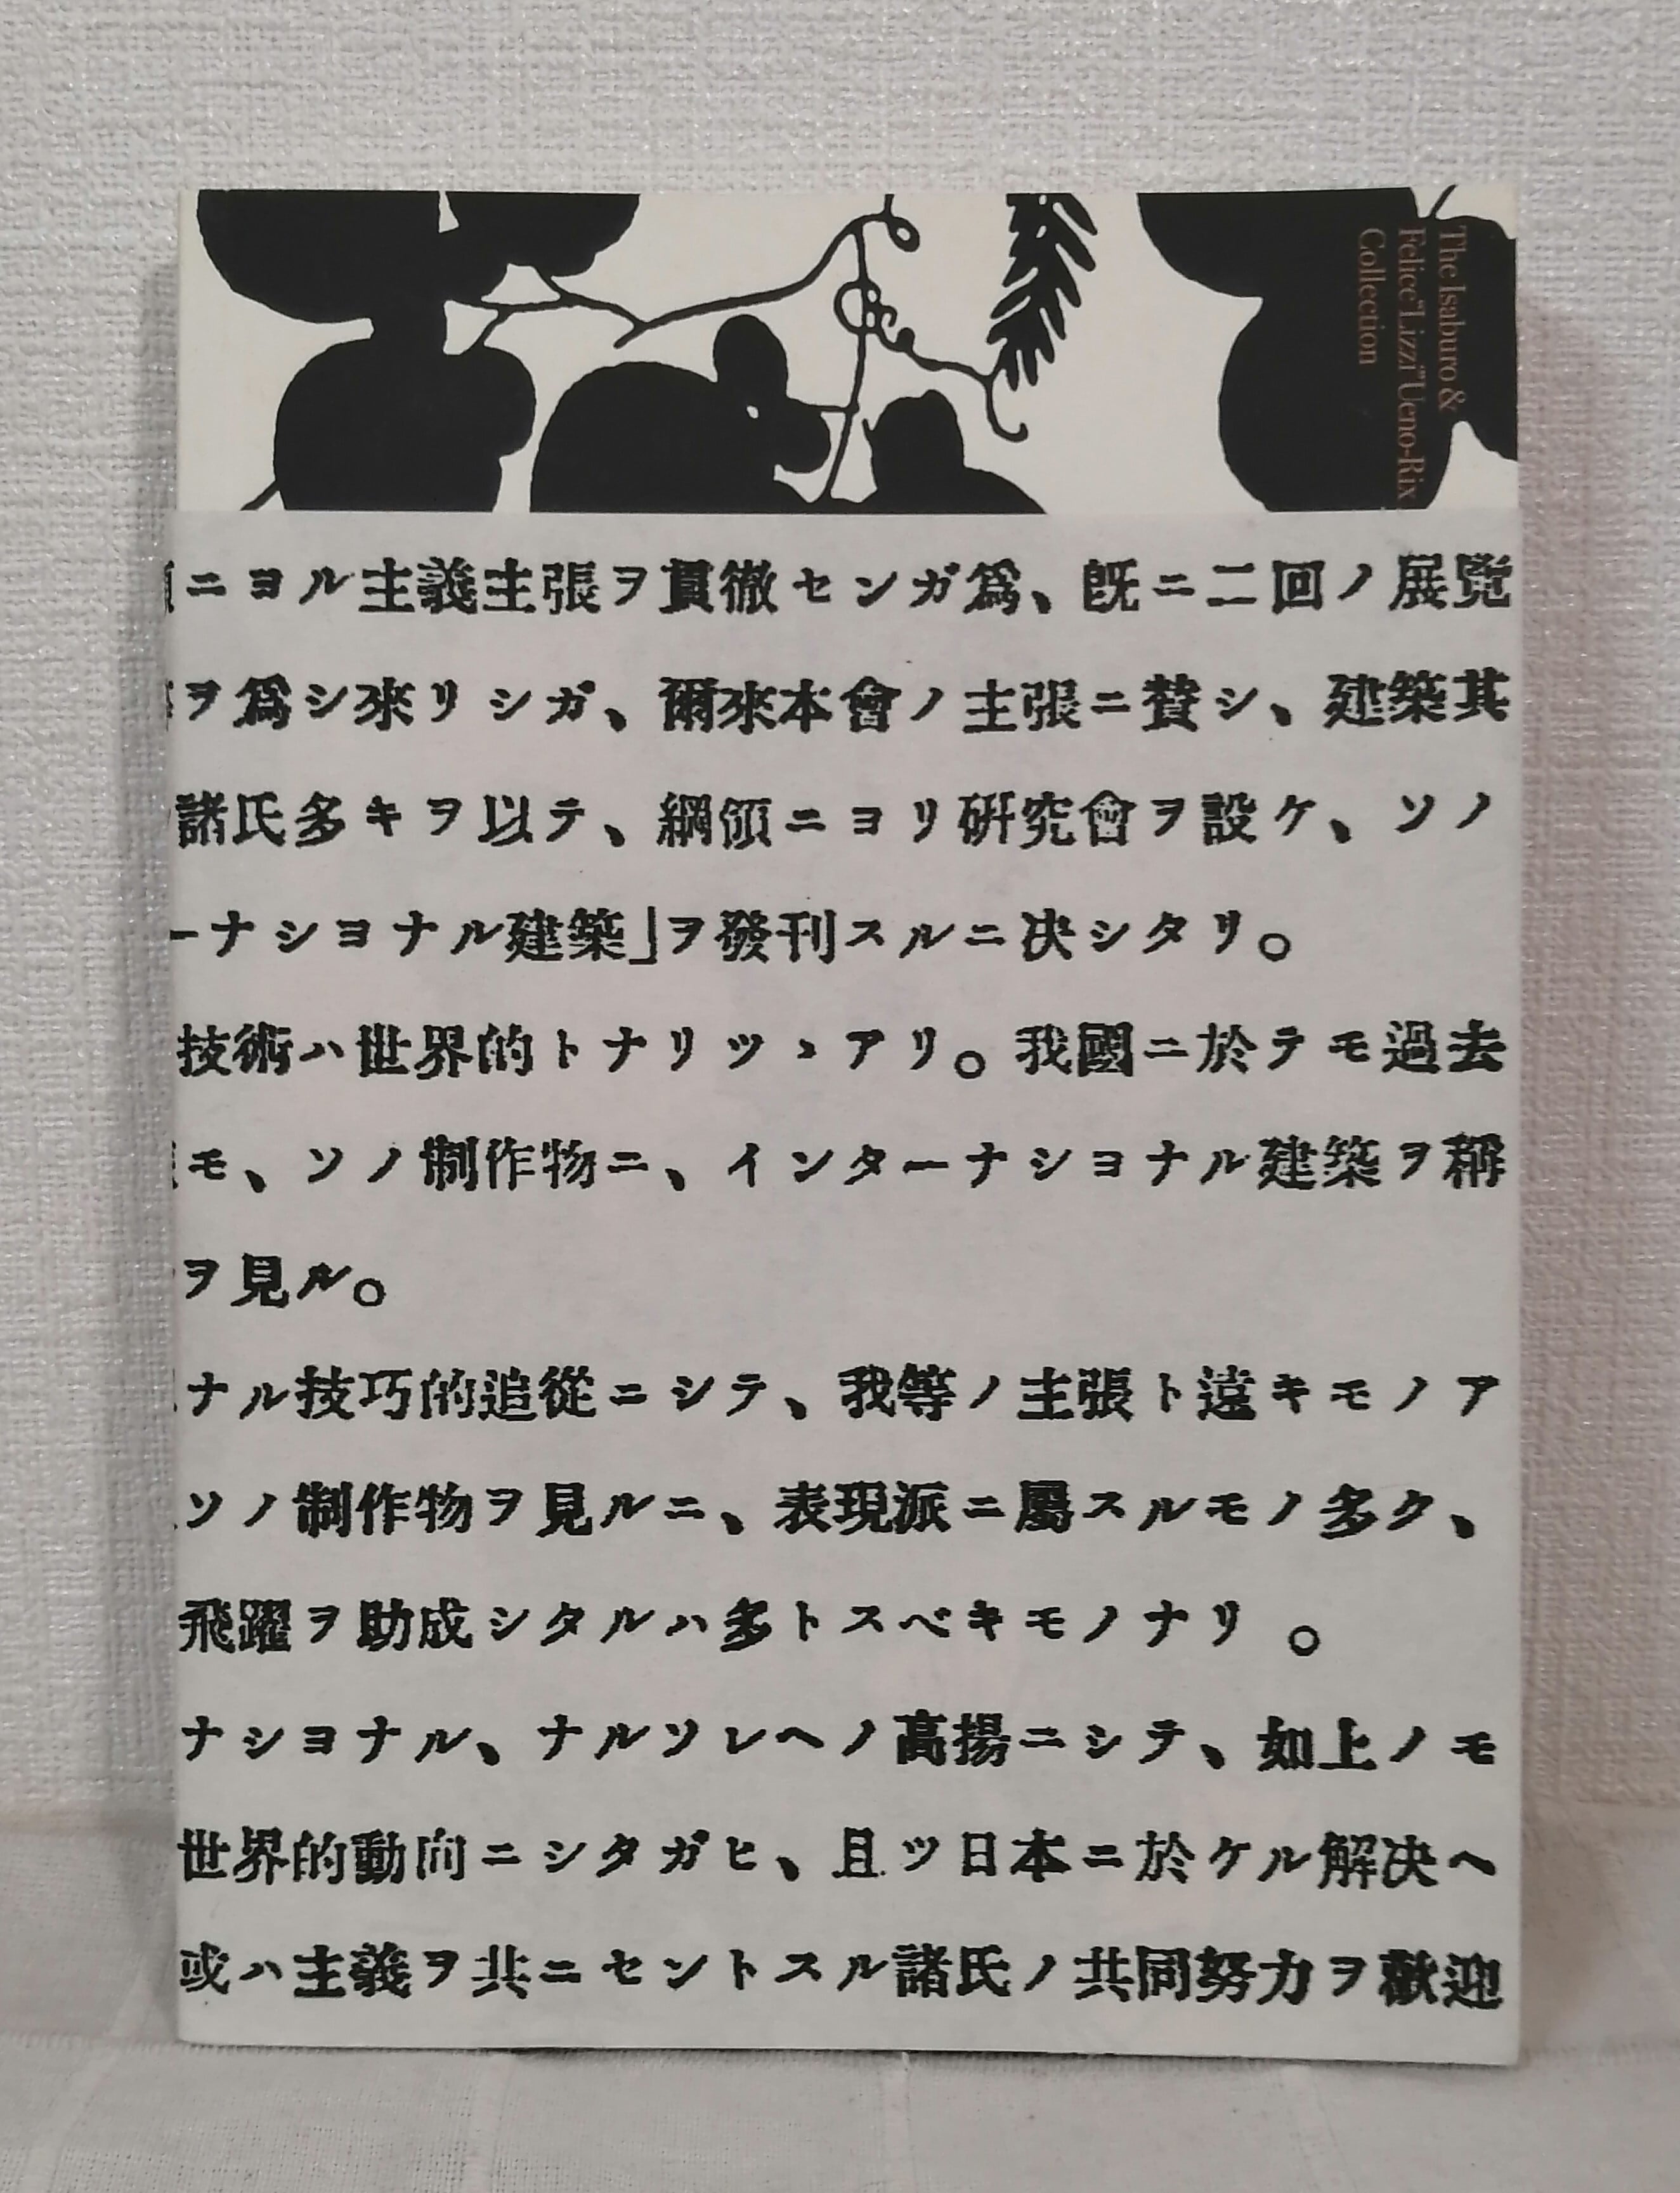 The Isaburo &
Felice "Lizzi" Ueno-Rix
Collection
ニヨル主義主張ヲ貫徹センガ爲、既ニ二回ノ展覧
ヲ爲シ來リシガ、爾來本會ノ主張ニ賛シ、建築其
諸氏多キヲ以テ、綱領ニヨリ研究會ヲ設ケ、ソノ
ーナシヨナル建築」ヲ發刊スルニ決シタリ。
技術ハ世界的トナリツヽアリ。我國ニ於テモ過去
モ、ソノ制作物ニ、インターナシヨナル建築ヲ稱
ヲ見ル。
ナル技巧的追從ニシテ、我等ノ主張ト遠キモノア
ソノ制作物ヲ見ルニ、表現派ニ屬スルモノ多ク、
飛躍ヲ助成シタルハ多トスベキモノナリ。
ナシヨナル、ナルソレヘノ高揚ニシテ、如上ノモ
世界的動向ニシタガヒ、且ツ日本ニ於ケル解決ヘ
或ハ主義ヲ共ニセントスル諸氏ノ共同努力ヲ歡迎